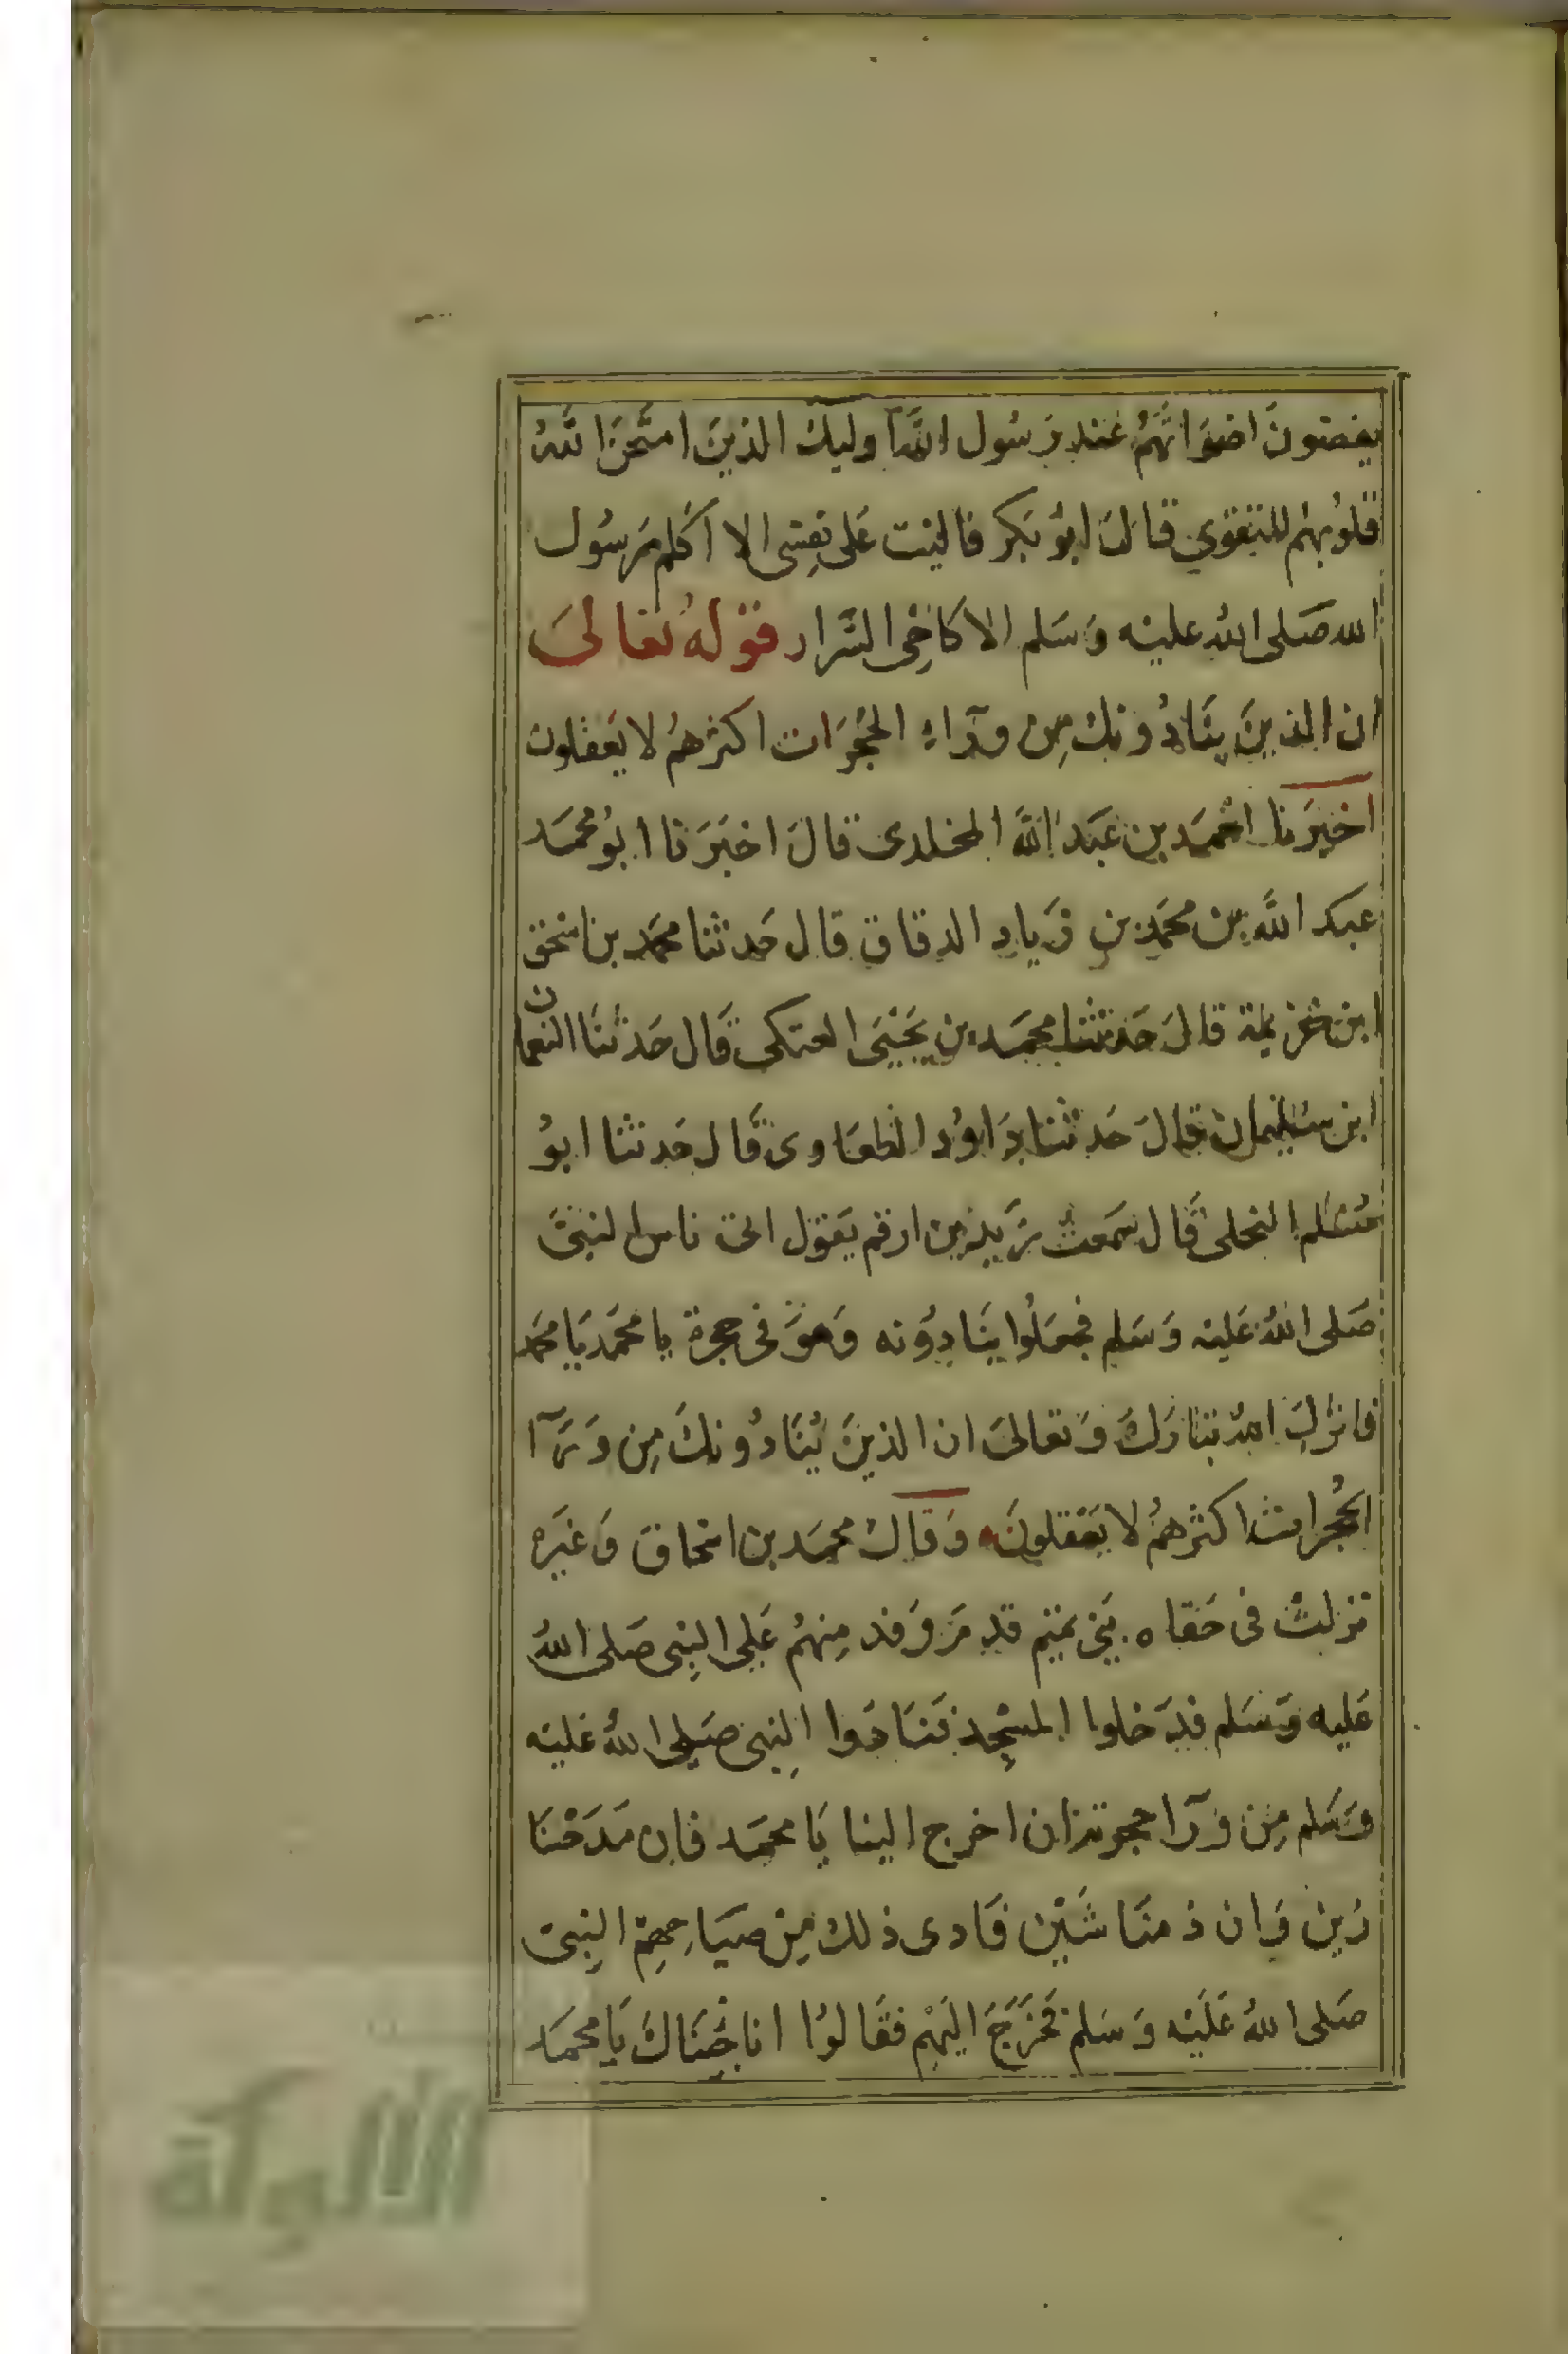 يغضون اصواتهم عند رسول الله اوليك الذين امتحن الله
قلوبهم للتقوي قال ابو بكر فاليت على نفسى الا اكلم رسول
الله صلى الله عليه وسلم الا كاخى السرار قوله تعالى
ان الذين ينادونك من وراء الحجرات اكثرهم لا يعقلون
اخبرنا احمد بن عبد الله المخلدى قال اخبرنا ابو محمد
عبد الله بن محمد بن زياد الدقاق قال حدثنا محمد بن اسحق
ابن خزيمة قال حدثنا محمد بن يحيى العتكى قال حدثنا النعمان
ابن سليمان قال حدثنا داود الطفاوى قال حدثنا ابو
مسلم النحلى قال سمعت زيد بن ارقم يقول اتى ناس النبى
صلى الله عليه وسلم فجعلوا ينادونه وهو فى حجرة يا محمد يا محمد
فانزل الله تبارك وتعالى ان الذين ينادونك من ورآ
الحجرات اكثرهم لا يعقلون وقال محمد بن اسحاق وغيره
نزلت فى حفاه بنى تميم قدم وفد منهم على النبى صلى الله
عليه وسلم فدخلوا المسجد فنادوا النبى صلى الله عليه
وسلم من ورآ حجرته ان اخرج الينا يا محمد فان مدحنا
زين وان ذمنا شين فادى ذلك من صياحهم النبى
صلى الله عليه وسلم فخرج اليهم فقالوا انا جئناك يا محمد
الألوكة